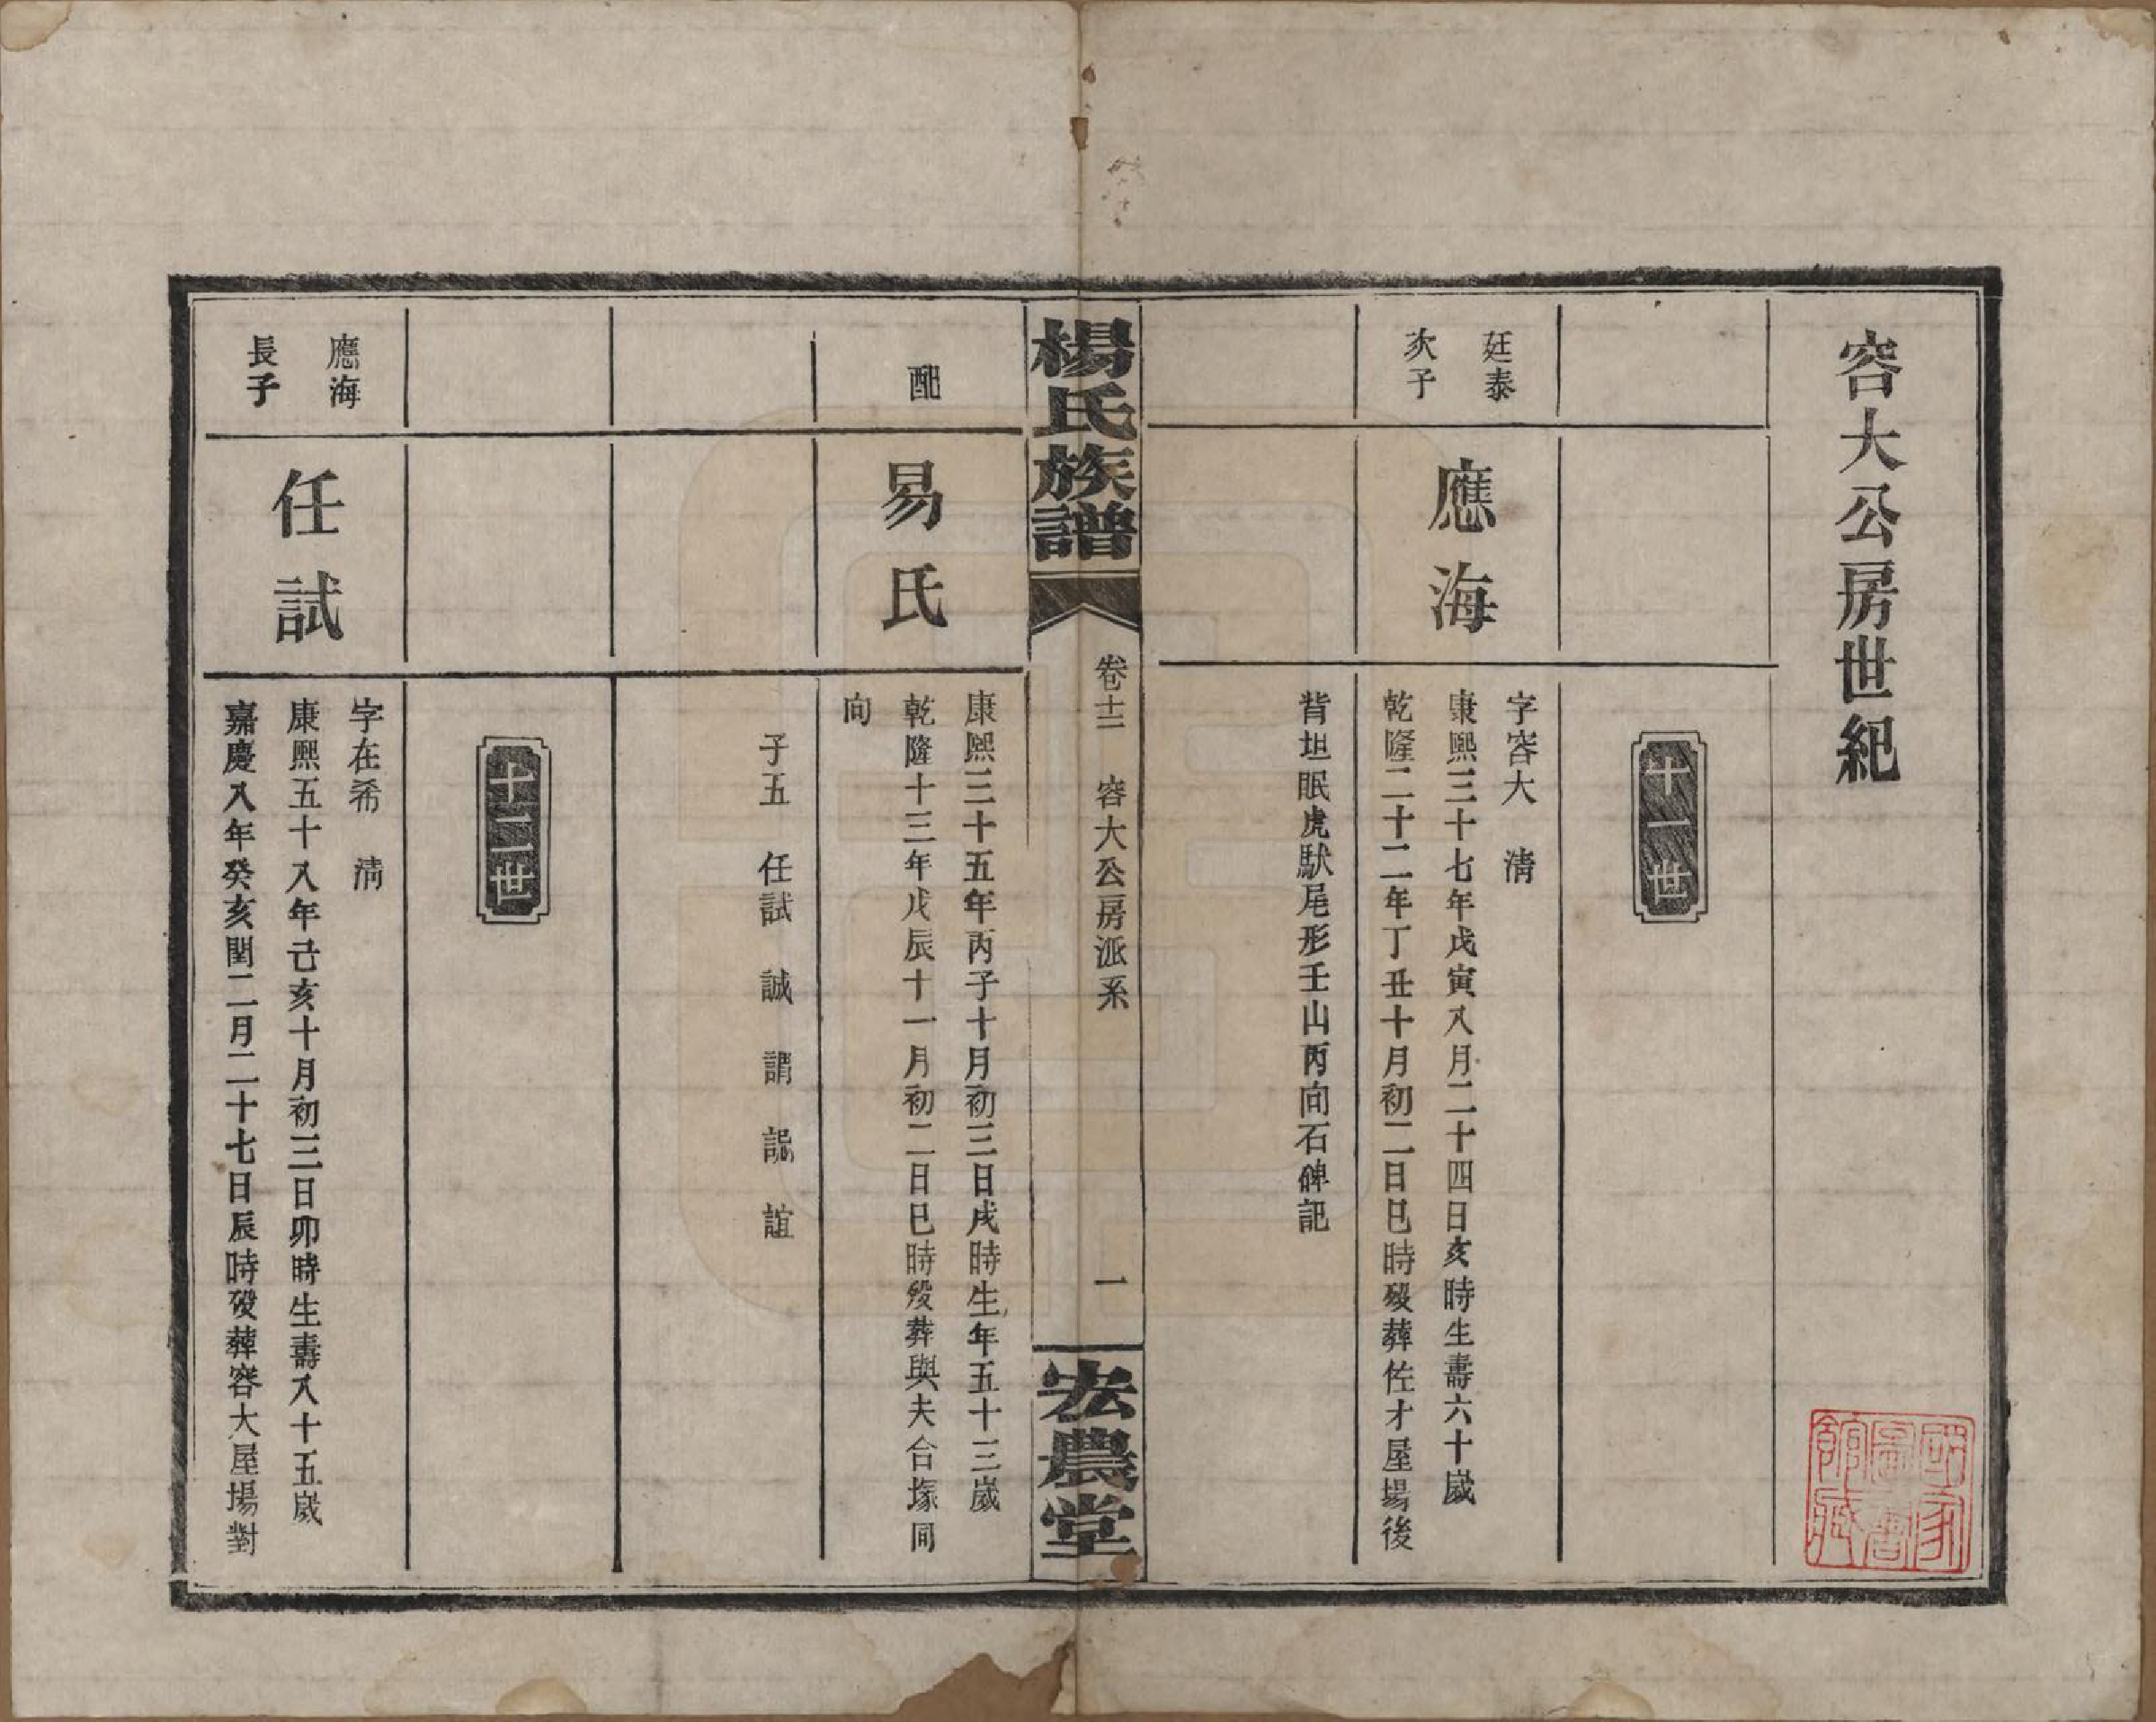 容大公房世紀
十一世
廷泰
次子
應海
字容大　清
康熙三十七年戊寅八月二十四日亥時生壽六十歲
乾隆二十二年丁丑十月初二日巳時歿葬佐才屋場後
背坦眠虎馱尾形壬山丙向石碑記
楊氏族譜
卷十二　容大公房派系
一
宏農堂
配
易氏
康熙三十五年丙子十月初三日戌時生年五十三歲
乾隆十三年戊辰十一月初二日巳時歿葬與夫合塚同
向
子五　任試　誠　謂　諟　誼
十二世
應海
長子
任試
字在希　清
康熙五十八年己亥十月初三日卯時生壽八十五歲
嘉慶八年癸亥閏二月二十七日辰時歿葬容大屋場對
國家
圖書
館藏